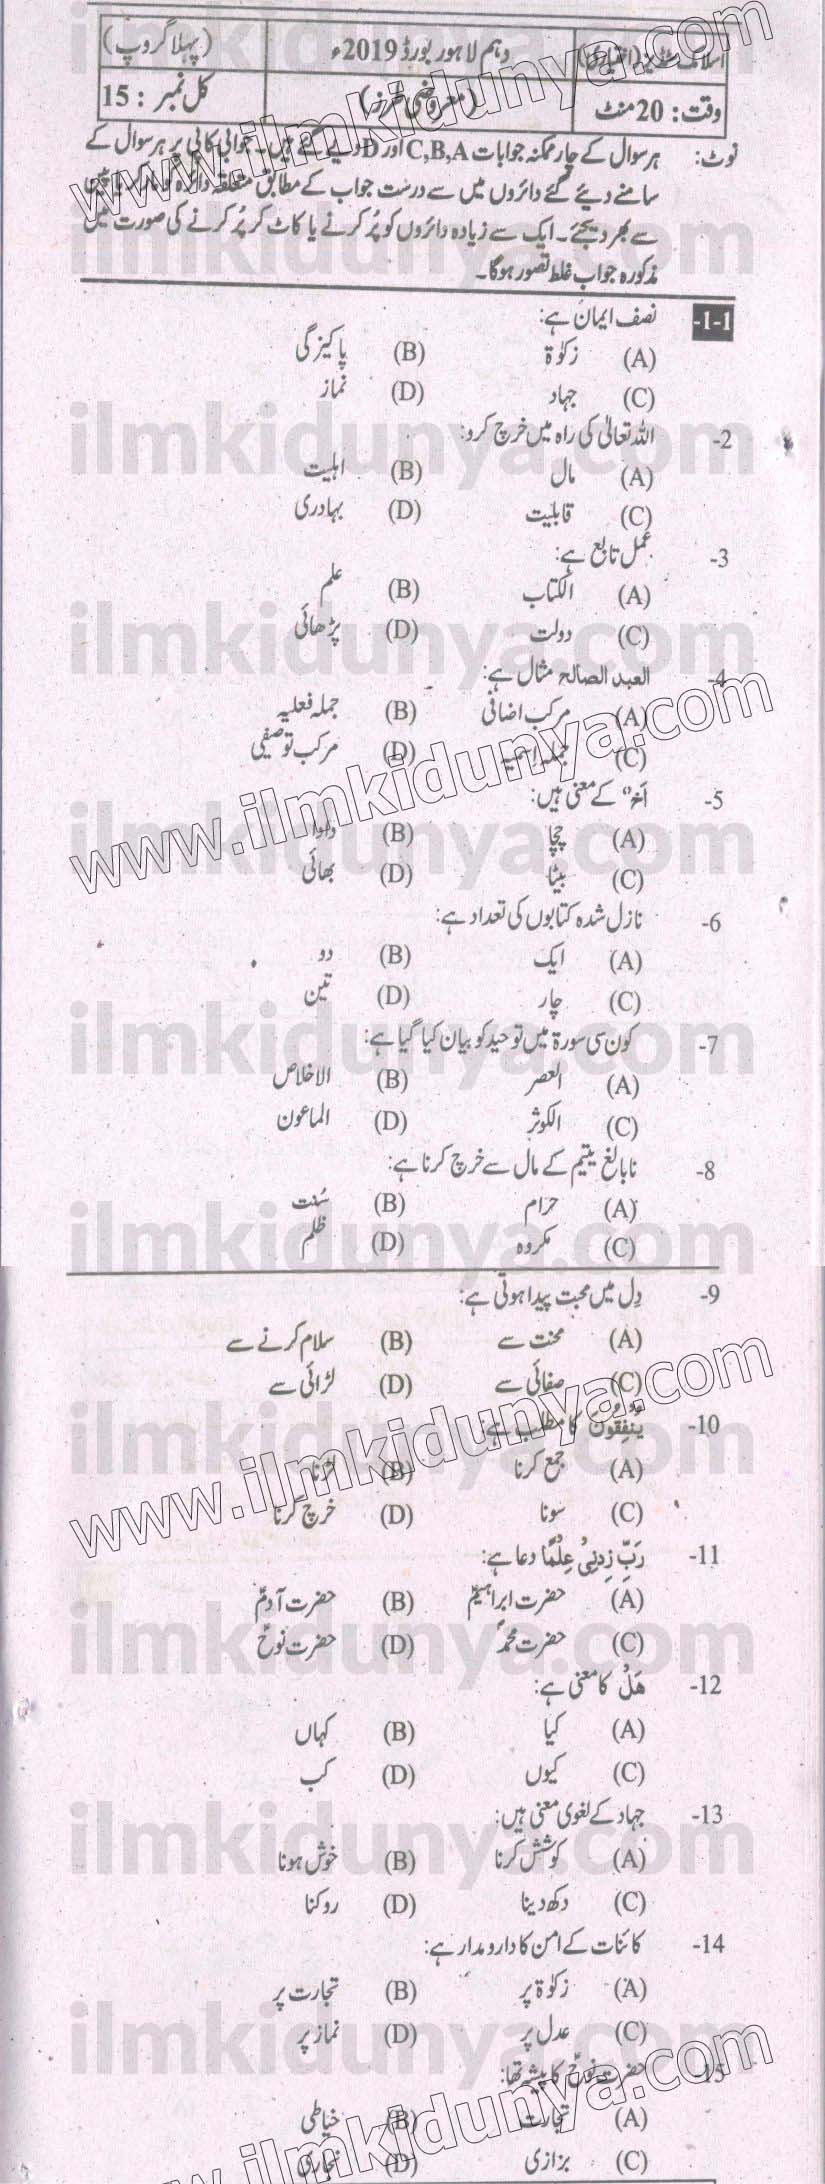 اسلامک سٹڈیز (اختیاری) دہم لاہور بورڈ 2019ء (پہلا گروپ)
وقت: 20 منٹ (معروضی طرز) کل نمبر: 15
نوٹ: ہر سوال کے چار ممکنہ جوابات C,B,A اور D دیے گئے ہیں۔ جوابی کاپی پر ہر سوال کے
سامنے دیئے گئے دائروں میں سے درست جواب کے مطابق متعلقہ دائرہ کو مارکر یا پین
سے بھر دیجئے۔ ایک سے زیادہ دائروں کو پُر کرنے یا کاٹ کر پُر کرنے کی صورت میں
مذکورہ جواب غلط تصور ہوگا۔
1-1- نصف ایمان ہے:
(A) زکوٰۃ (B) پاکیزگی
(C) جہاد (D) نماز
2- اللہ تعالیٰ کی راہ میں خرچ کرو:
(A) مال (B) اہلیت
(C) قابلیت (D) بہادری
3- عمل تابع ہے:
(A) الکتاب (B) علم
(C) دولت (D) پڑھائی
4- العبد الصالح مثال ہے:
(A) مرکب اضافی (B) جملہ فعلیہ
(C) جملہ اسمیہ (D) مرکب توصیفی
5- اَخٌ کے معنی ہیں:
(A) چچا (B) دادا
(C) بیٹا (D) بھائی
6- نازل شدہ کتابوں کی تعداد ہے:
(A) ایک (B) دو
(C) چار (D) تین
7- کون سی سورۃ میں توحید کو بیان کیا گیا ہے:
(A) العصر (B) الاخلاص
(C) الکوثر (D) الماعون
8- نابالغ یتیم کے مال سے خرچ کرنا ہے:
(A) حرام (B) سُنت
(C) مکروہ (D) ظلم
9- دِل میں محبت پیدا ہوتی ہے:
(A) محنت سے (B) سلام کرنے سے
(C) صفائی سے (D) لڑائی سے
10- يُنْفِقُوْنَ کا مطلب ہے:
(A) جمع کرنا (B) لڑنا
(C) سونا (D) خرچ کرنا
11- رَبِّ زِدْنِیْ عِلْمًا دعا ہے:
(A) حضرت ابراہیمؑ (B) حضرت آدمؑ
(C) حضرت محمدؐ (D) حضرت نوحؑ
12- هَلْ کا معنی ہے:
(A) کیا (B) کہاں
(C) کیوں (D) کب
13- جہاد کے لغوی معنی ہیں:
(A) کوشش کرنا (B) خوش ہونا
(C) دکھ دینا (D) روکنا
14- کائنات کے امن کا دارومدار ہے:
(A) زکوٰۃ پر (B) تجارت پر
(C) عدل پر (D) نماز پر
15- حضرت نوحؑ کا پیشہ تھا:
(A) تجارت (B) خیاطی
(C) بزازی (D) نجاری
www.ilmkidunya.com
ilmkidunya.com
ilmkidunya.com
ilmkidunya.com
www.ilmkidunya.com
ilmkidunya.com
ilmkidunya.com
ilmkidunya.com
www.ilmkidunya.com
ilmkidunya.com
ilmkidunya.com
ilmkidunya.com
ilmkidunya.com
www.ilmkidunya.com